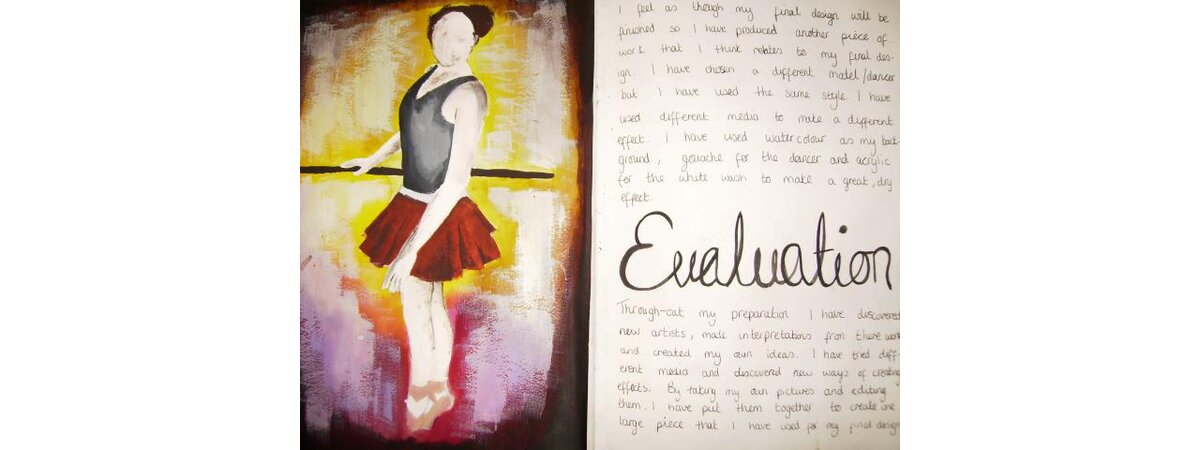 I feel as though my final design will be
finished so I have produced another piece of
work that I think relates to my final des-
ign. I have chosen a different model/dancer
but I have used the same style. I have
used different media to make a different
effect. I have used watercolour as my back-
ground, gouache for the dancer and acrylic
for the white wash to make a great, dry
effect.
Evaluation
Through-out my preparation I have discovered
new artists, made interpretations from there work
and created my own ideas. I have tried diff-
erent media and discovered new ways of creating
effects. By taking my own pictures and editing
them. I have put them together to create one
large piece that I have used for my final design